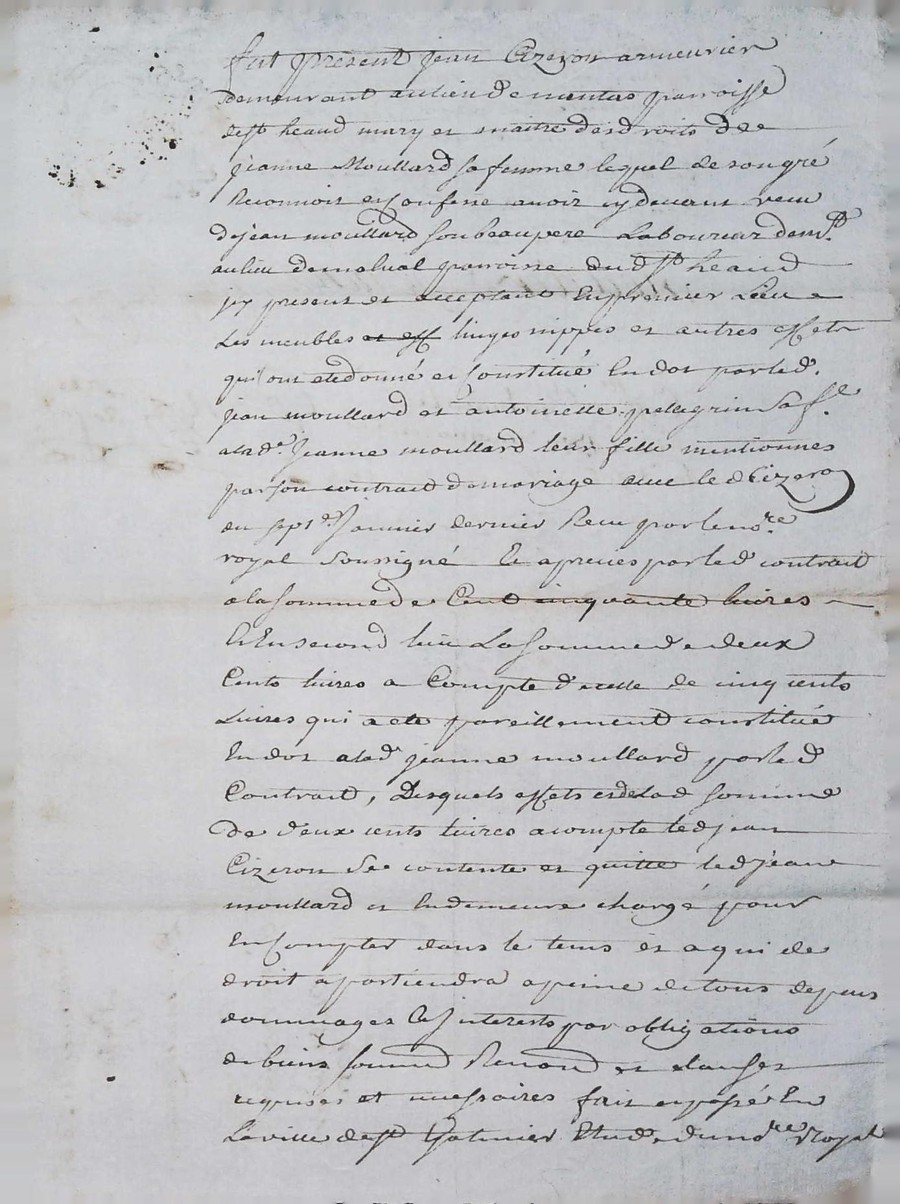 fut present jean Cizeron armeurier
demeurant au lieu de mantas parroisse
de st heand mary et maitre des droits de
jeanne Moullard sa femme lequel de son gré
Reconnoit et confesse avoir cy devant receu
de jean moullard son beaupere Laboureur dem.t
au lieu de malval parroisse dud st heand
jcy present et acceptant En premier Lieu
Les meubles et eff linges nippes et autres effets
qui ont eté donné et Constitué En dot par led.
jean moullard et antoinette pellegrin sa f.e
a lad.e Jeanne moullard leur fille mentionnes
par son contrait de mariage avec le d Cizeron
du sept.e Janvier dernier Receu par le no.re
royal soussigné Et apreciés par led contrait
a la somme de Cent cinquante livres
Et En second lieu La somme de deux
Cents livres a Compte d'icelle de cinq cents
Livres qui a eté pareillement constitué
En dot a lad jeanne moullard par le d
Contrait, Desquels effets et de lad somme
de deux cents livres acompte led jean
Cizeron se contente et quitte led jean
moullard et En demeure chargé pour
En Compter dans le tems et a qui de
droit apartiendra a peine de tous depens
dommages Et Interests par obligations
de biens soumd Renond et clauses
requises et necessaires fait et passé En
La ville de st Galmier Etude du no.re Royal